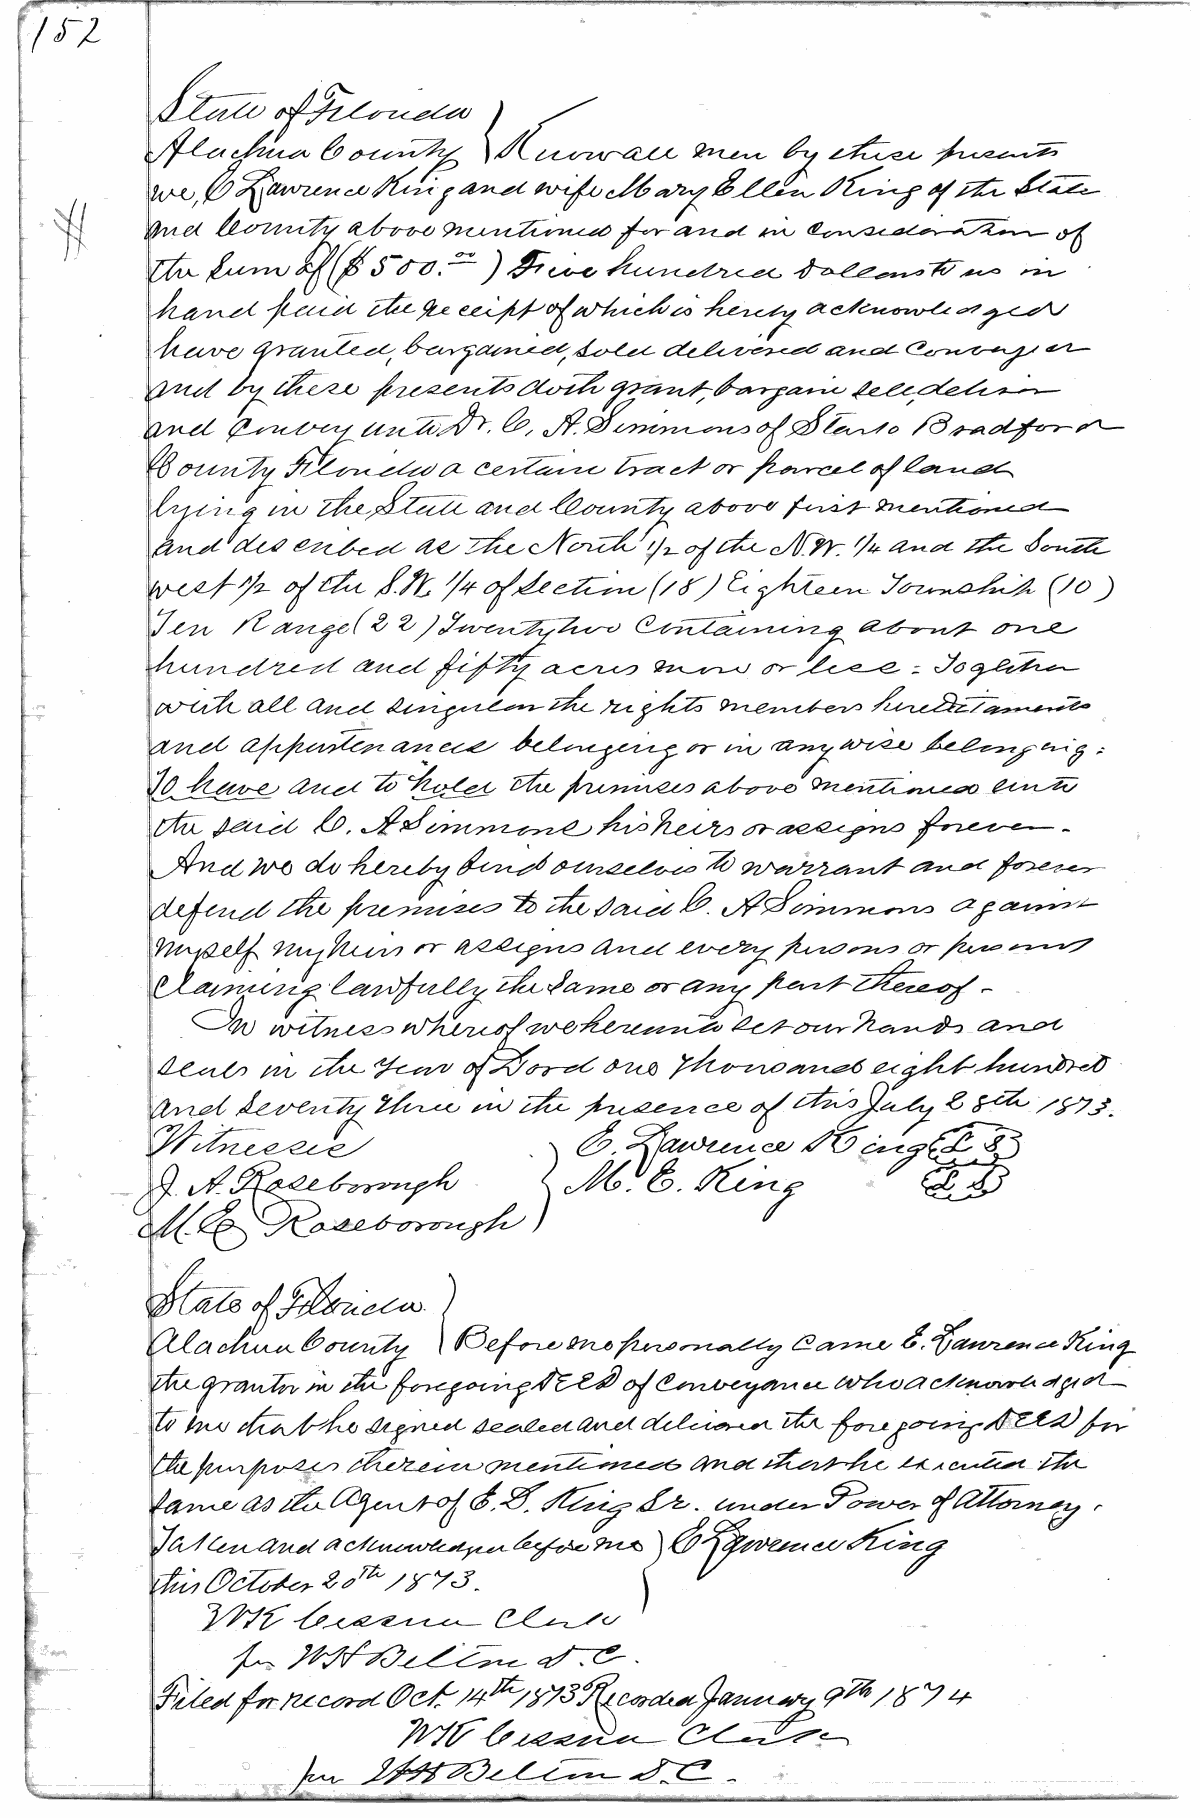 152
State of Florida
Alachua County } Know all men by these presents
we, E Lawrence King and wife Mary Ellen King of the State
and County above mentioned for and in consideration of
the Sum of ($500.00) Five hundred dollars to us in
hand paid the receipt of which is hereby acknowledged
have granted, bargained, sold delivered and Conveyed
and by these presents doth grant, bargain sell, deliver
and Convey unto Dr. C. A. Simmons of Starke Bradford
County Florida a certain tract or parcel of land
lying in the State and County above first mentioned
and described as the North 1/2 of the N.W. 1/4 and the South
west 1/2 of the S.W. 1/4 of Section (18) Eighteen Township (10)
Ten Range (22) Twenty two Containing about one
hundred and fifty acres more or less - Together
with all and singular the rights members hereditaments
and appurtenances belonging or in any wise belonging:
To have and to hold the premises above mentioned unto
the said C. A Simmons his heirs or assigns forever -
And we do hereby bind ourselves to warrant and forever
defend the premises to the said C. A Simmons against
myself my heirs or assigns and every persons or persons
claiming lawfully the Same or any part thereof -
In witness whereof we hereunto set our hands and
seals in the year of Lord one thousand eight hundred
and Seventy three in the presence of this July 28th 1873.
Witnesses } E. Lawrence King (L S)
J. A. Roseborough } M. E. King (L S)
M. E. Roseborough
State of Florida
Alachua County } Before me personally Came E. Lawrence King
the grantor in the foregoing DEED of Conveyance who acknowledged
to me that he signed sealed and delivered the foregoing DEED for
the purposes therein mentioned and that he executed the
same as the Agent of E. D. King Sr. under Power of Attorney.
Taken and acknowledged before me } E Lawrence King
this October 20th 1873.
WK Cessna Clerk
per WH Belton D. C.
Filed for record Oct. 14th 1873 Recorded January 9th 1874
WK Cessna Clerk
per WH Belton D. C.